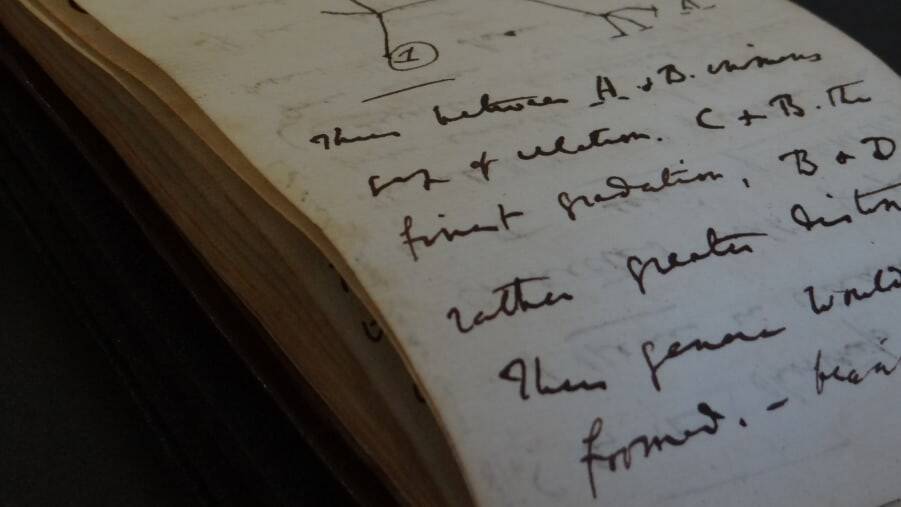 A
1
Thus between A + B. immens
gap of relation. C + B. The
finest gradation, B & D
rather greater distin
Thus genera would
formed. - bear